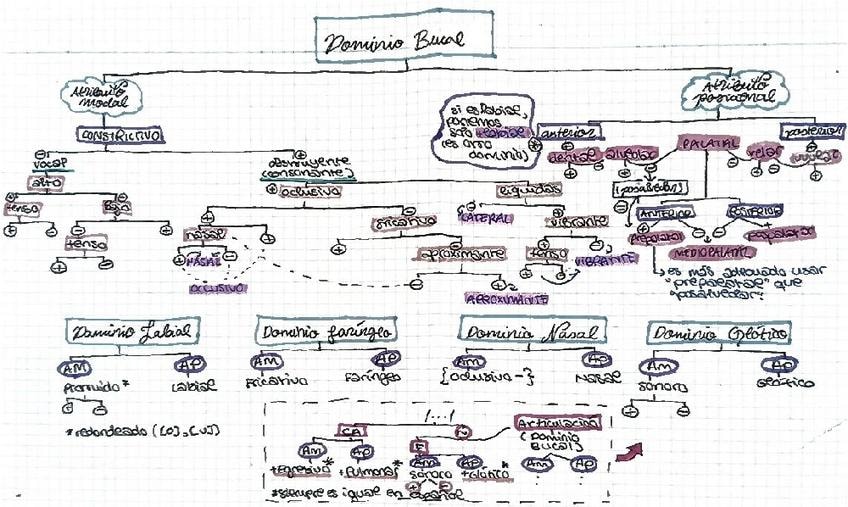 Dominio Bucal
Atributo
modal
Atributo
posicional
CONSTRICTIVO
si es labial,
ponemos
solo +labial
(es otro
dominio)
*
anterior
posterior
dental
alveolar
PALATAL
velar
uvular
vocal
alto
tenso
bajo
tenso
obstruyente
(consonante)
oclusivo
líquidas
nasal
NASAL
OCLUSIVO
fricativo
aproximante
APROXIMANTE
LATERAL
vibrante
tenso
VIBRANTE
(posalveolar)
ANTERIOR
POSTERIOR
Prepalatal
MEDIOPALATAL
Pospalatal
→ es más adecuado usar
"prepalatal" que
"posalveolar".
Dominio Labial
AM
AP
Protruido*
Labial
+
-
*redondeado ([o], [u])
Dominio faríngeo
AM
AP
Fricativo
Faríngeo
Dominio Nasal
AM
AP
{oclusivo -}
Nasal
Dominio Glótico
AM
AP
sonoro
Glótico
+
-
/.../
CA
F
Articulación
(Dominio
Bucal)
AM
AP
AM
AP
AM
AP
+Egresivo*
+Pulmonar*
sonoro
+Glótico*
+
-
*siempre es igual en español